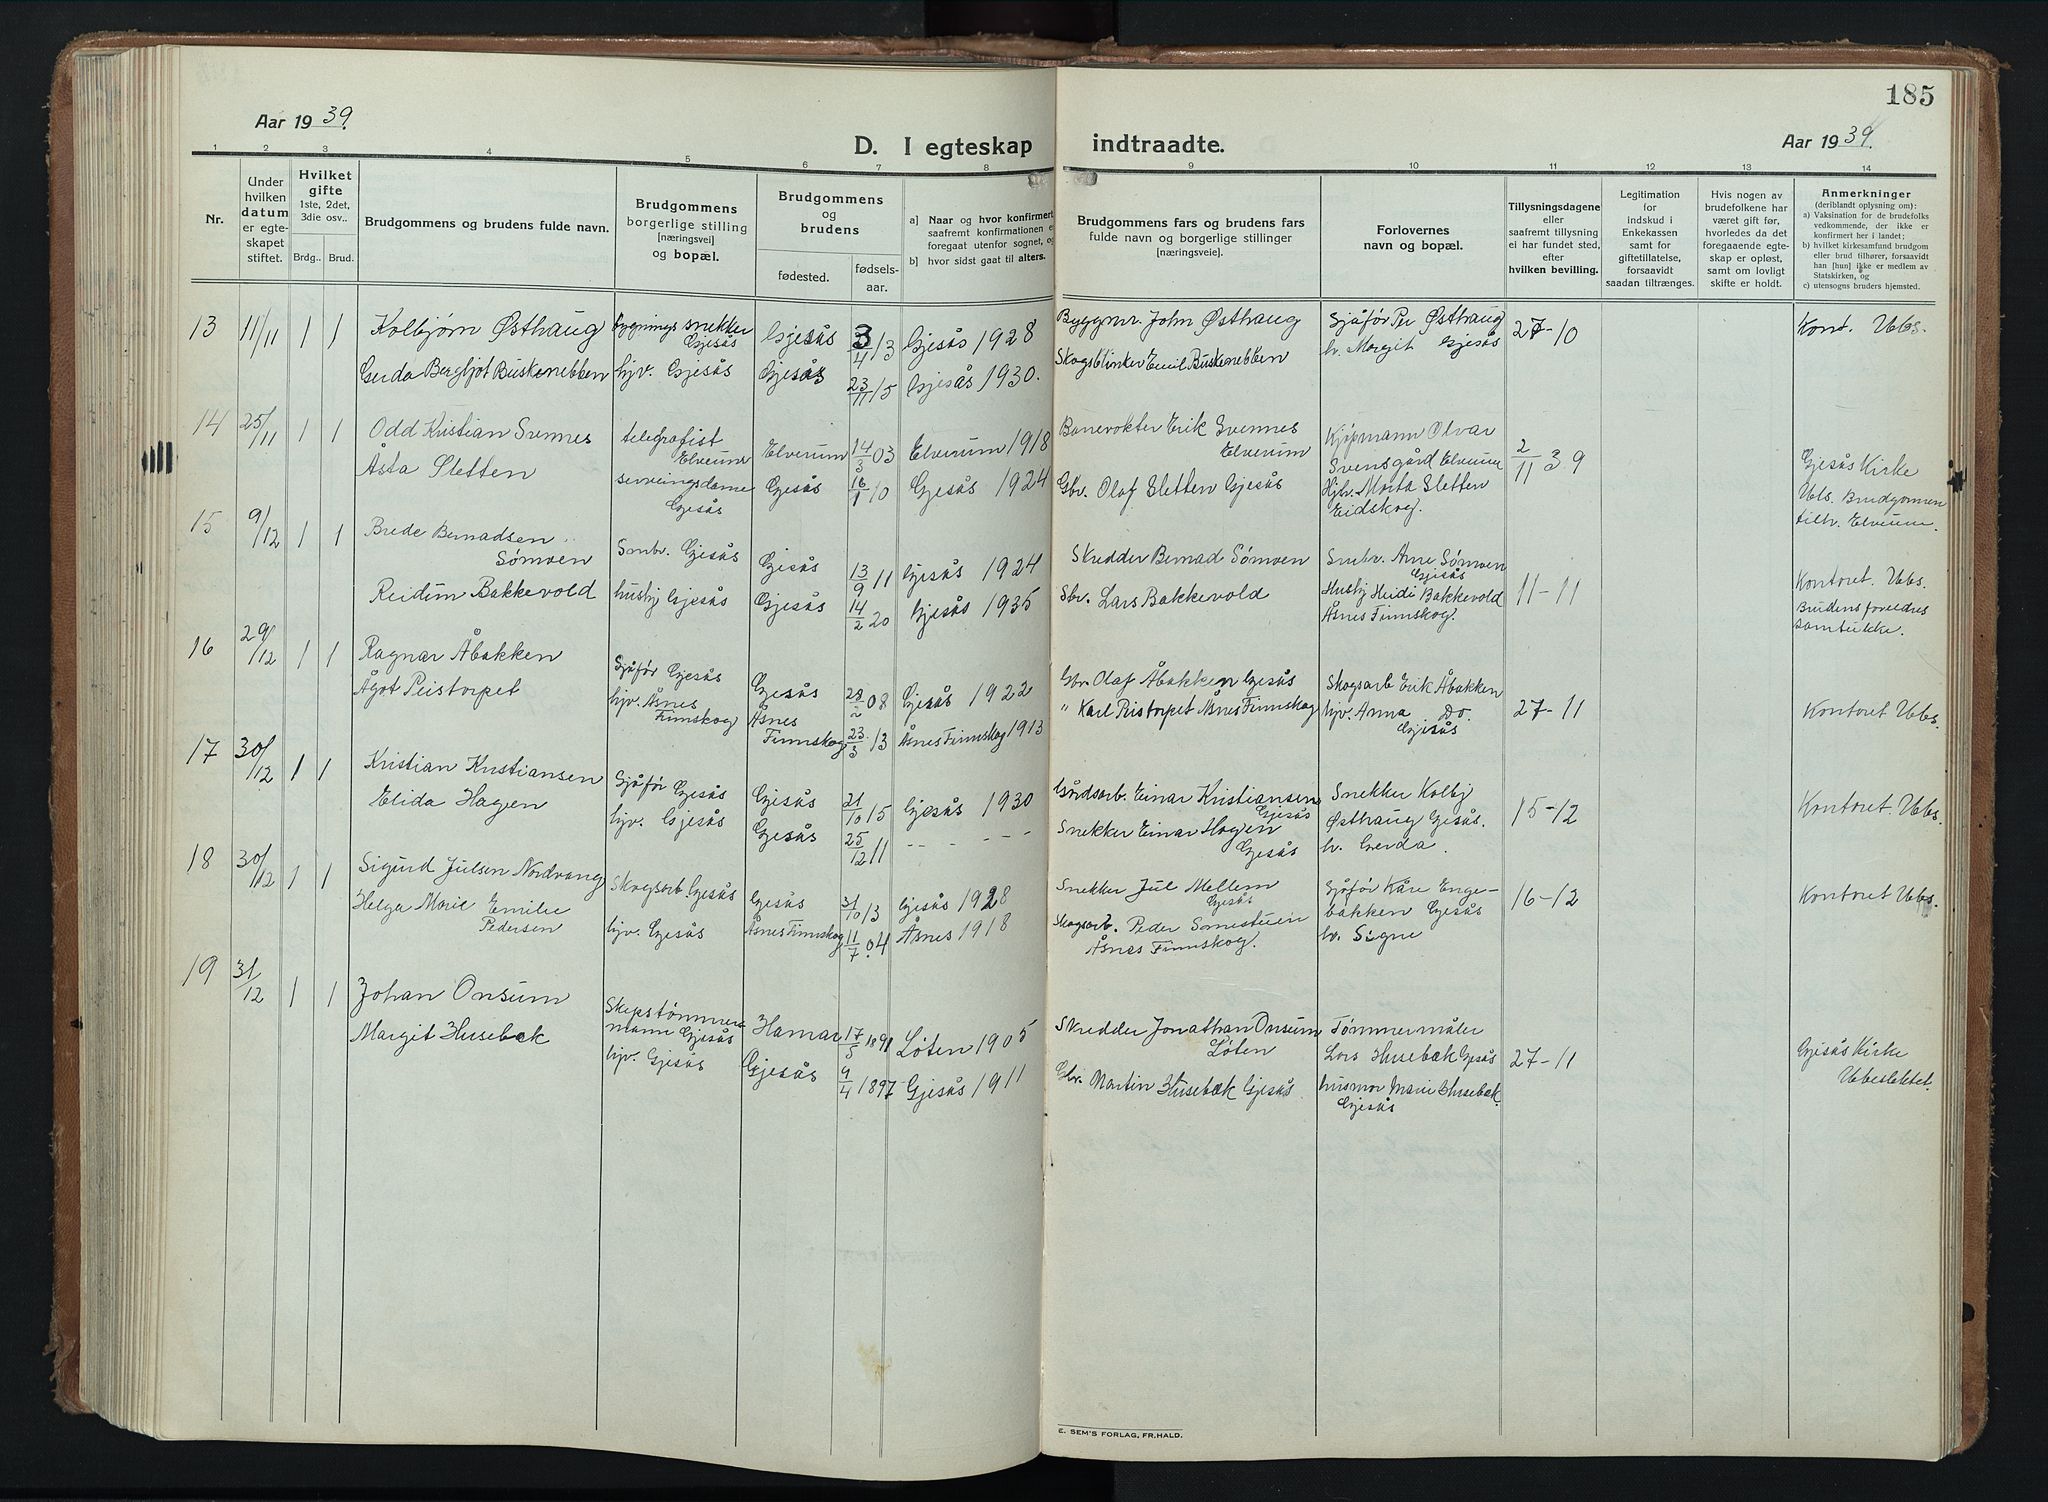 185
Aar 1939.
D. I egteskap indtraadte.
Aar 1939.
1 2 3 4 5 6 7 8 9 10 11 12 13 14
Nr.
Under hvilken datum er egte-skapet stiftet.
Hvilket gifte 1ste, 2det, 3die osv..
Brdg.. Brud.
Brudgommens og brudens fulde navn.
Brudgommens borgerlige stilling [næringsvei] og bopæl.
Brudgommens og brudens
fødested. fødsels-aar.
a) Naar og hvor konfirmert, saafremt konfirmationen er foregaat utenfor sognet, og
b) hvor sidst gaat til alters.
Brudgommens fars og brudens fars fulde navn og borgerlige stillinger [næringsveie].
Forlovernes navn og bopæl.
Tillysningsdagene eller saafremt tillysning ei har fundet sted, efter hvilken bevilling.
Legitimation for indskud i Enkekassen samt for giftetillatelse, forsaavidt saadan tiltrænges.
Hvis nogen av brudefolkene har været gift før, hvorledes da det foregaaende egte-skap er opløst, samt om lovligt skifte er holdt.
Anmerkninger (deriblandt oplysning om):
a) Vaksination for de brudefolks vedkommende, der ikke er konfirmert her i landet;
b) hvilket kirkesamfund brudgom eller brud tilhører, forsaavidt han [hun] ikke er medlem av Statskirken, og
c) utensogns bruders hjemsted.
13 11/11 1 1 Kolbjørn Østhaug bygnings snekker Gjesås Gjesås 3/4 13 Gjesås 1928 Byggmr. John Østhaug Sjåfør Per Østhaug 27-10 Kont. Vbs.
Gerda Bergljot Buskenebben hjv. Gjesås Gjesås 23/11 15 Gjesås 1930. Skogsblinker Emil Buskenebben h. Margit Gjesås
14 25/11 1 1 Odd Kristian Svennes telegrafist Elverum Elverum 14/3 03 Elverum 1918 Banevokter Erik Svennes Elverum Kjøpmann Olvar Svensgård Elverum 2/11 39 Gjesås Kirke
Åsta Sletten serveringsdame Gjesås Gjesås 16/1 10 Gjesås 1924 Gbr. Olaf Sletten Gjesås Hjv. Marta Sletten Eidskog. Vbs. Brudgommen tilh. Elverum.
15 9/12 1 1 Brede Bernadsen Sømoen Smbr. Gjesås Gjesås 13/9 11 Gjesås 1924 Skredder Bernad Sømoen Smbr. Arne Sømoen Gjesås 11-11 Kontoret. Vbs.
Reidun Bakkevold hushj Gjesås Gjesås 14/2 20 Gjesås 1935 Sbr. Lars Bakkevold Hushj Heidi Bakkevold Åsnes Finnskog. Brudens foreldres samtykke.
16 29/12 1 1 Ragnar Åbakken Sjåfør Gjesås Gjesås 28/2 08 Gjesås 1922 Gbr. Olaf Åbakken Gjesås Skogsarb Erik Åbakken 27-11 Kontoret Vbs.
Ågot Peistorpet hjv. Åsnes Finnskog Åsnes Finnskog 23/3 13 Åsnes Finnskog 1913 " Karl Ristorpet Åsnes Finnskog hjv. Anna Do. Gjesås
17 30/12 1 1 Kristian Kristiansen Sjåfør Gjesås Gjesås 21/10 15 Gjesås 1930 Gårdsarb. Einar Kristiansen Gjesås Snekker Kolbj Østhaug Gjesås. 15-12 Kontoret. Vbs.
Elida Hagen hjv. Gjesås Gjesås 25/12 11 - - - - Snekker Einar Hagen Gjesås h. Gerda.
18 30/12 1 1 Sigurd Julsen Nordvang Skogsarb. Gjesås Gjesås 31/10 13 Gjesås 1928 Snekker Jul Mellem Gjesås Sjåfør Kåre Enge-bakken Gjesås 16-12 Kontoret Vbs.
Helga Marie Emilie Pedersen hjv. Gjesås Åsnes Finnskog 11/7 04 Åsnes 1918 Skogsarb. Peder Åsnes Finnskog. h. Signe
19 31/12 1 1 Johan Onsum Skipstømmer-mann Gjesås Hamar 17/5 1891 Løten 1905 Skredder Jonathan Onsum Løten Tømmermåler Lars Husebæk Gjesås 27-11 Gjesås Kirke
Margit Husebæk hjv. Gjesås Gjesås 9/4 1897 Gjesås 1911 Gbr. Martin Husebæk Gjesås husmor Marie Husebæk. Gjesås
E. SEM'S FORLAG, FR.HALD.